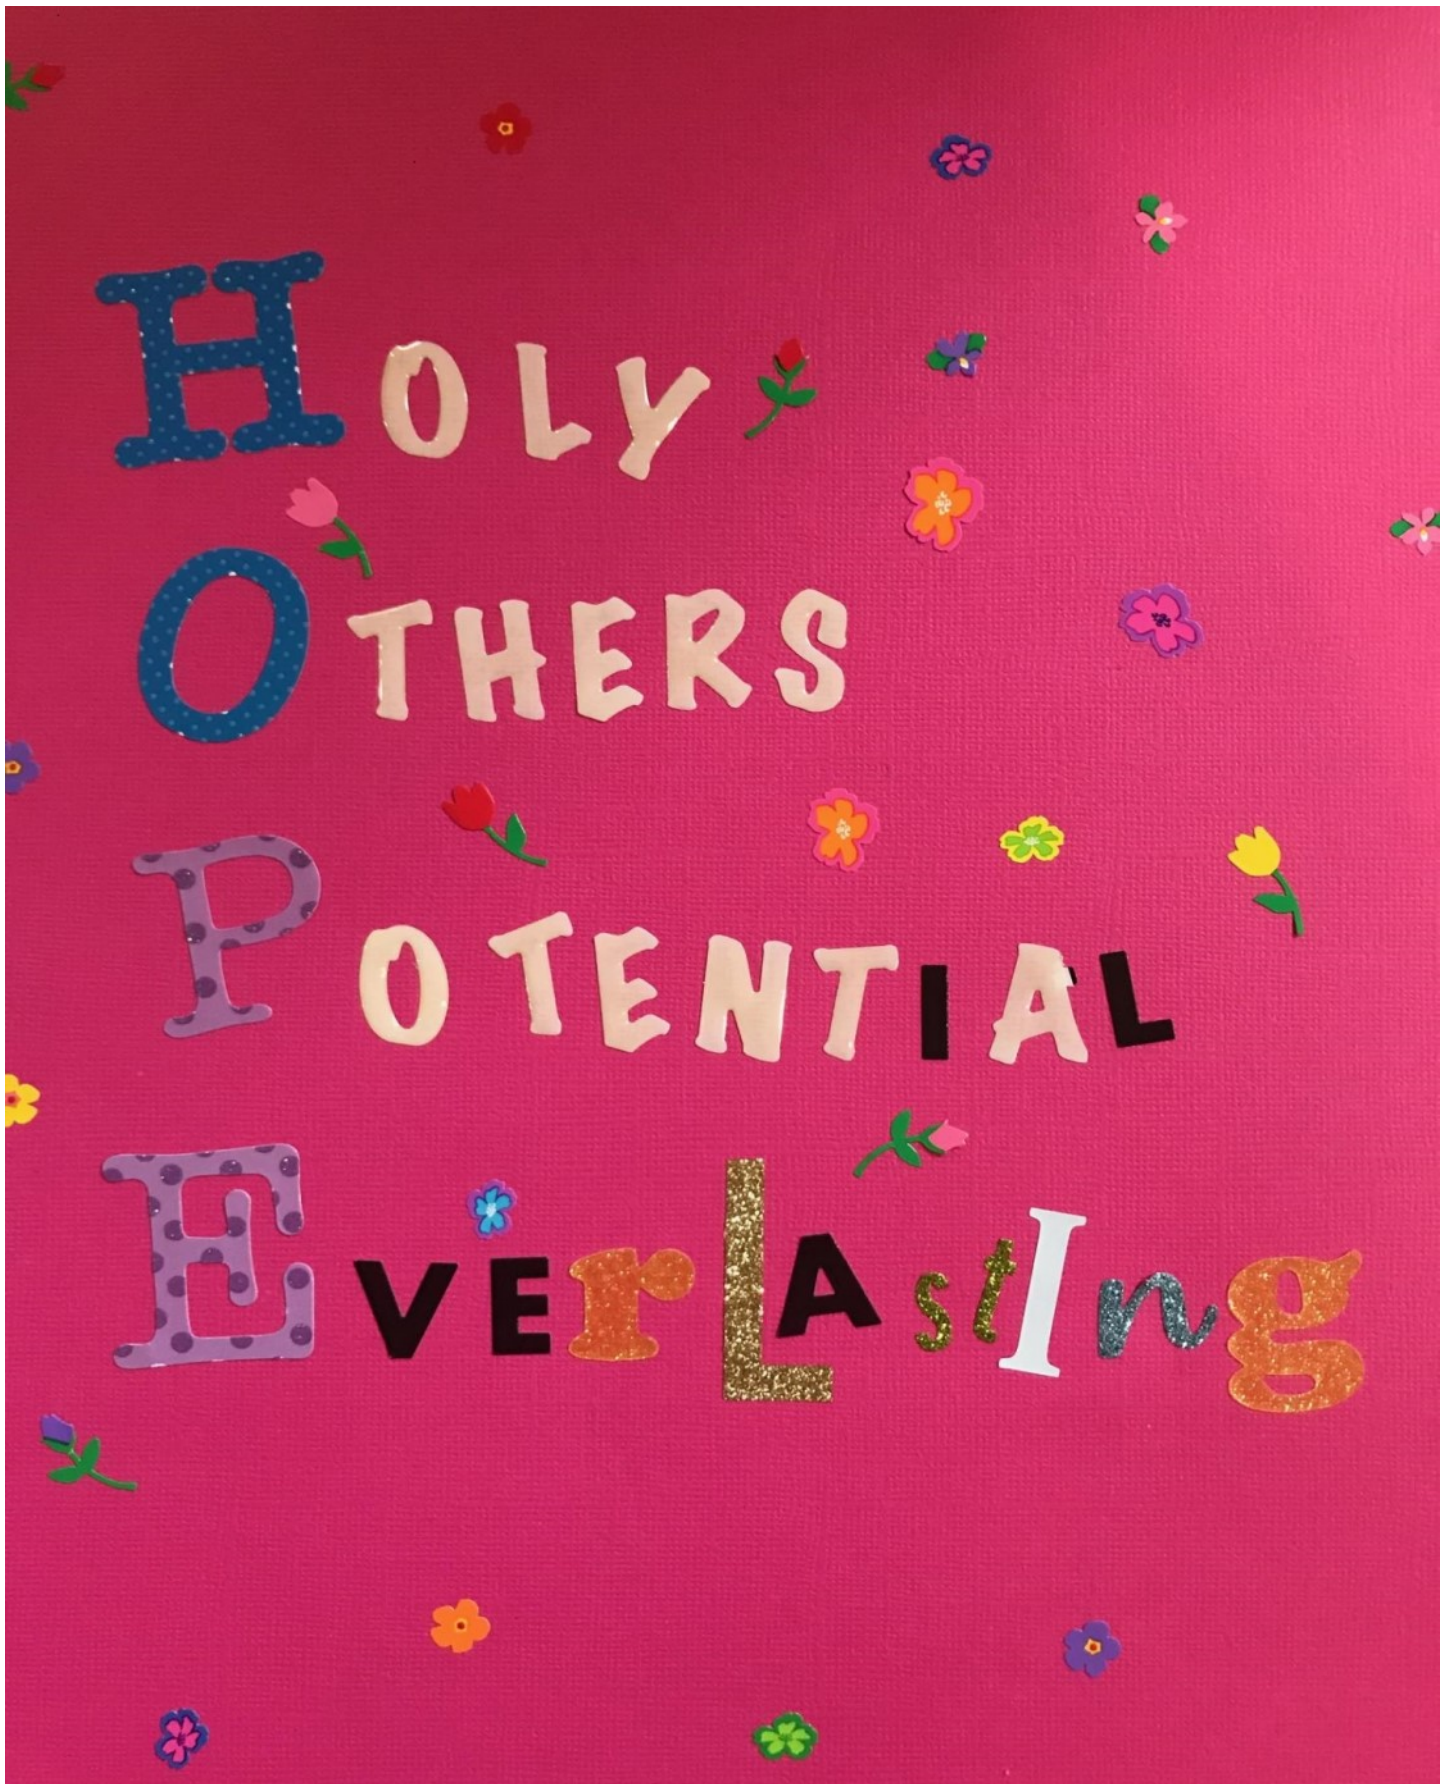 HOLY
OTHERS
POTENTIAL
EVErLAstIng